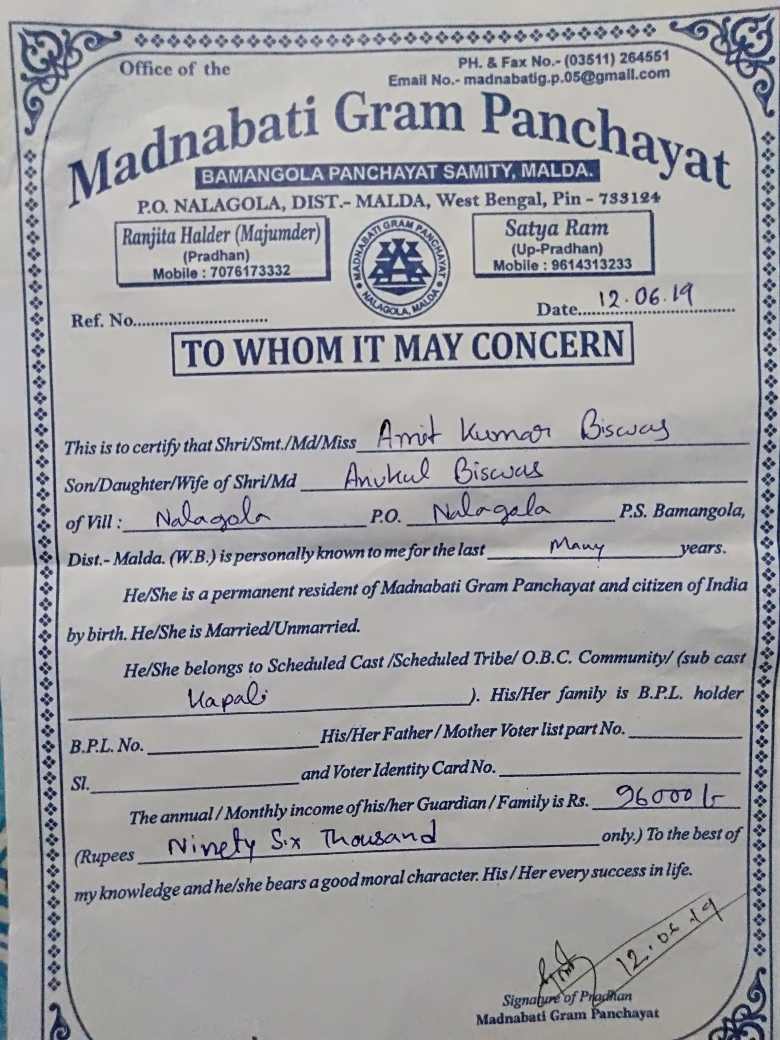 Office of the
PH. & Fax No.- (03511) 264551
Email No.- madnabatig.p.05@gmail.com
Madnabati Gram Panchayat
BAMANGOLA PANCHAYAT SAMITY, MALDA.
P.O. NALAGOLA, DIST.- MALDA, West Bengal, Pin - 733124
Ranjita Halder (Majumder)
(Pradhan)
Mobile : 7076173332
MADNABATI GRAM PANCHAYAT
NALAGOLA, MALDA
Satya Ram
(Up-Pradhan)
Mobile : 9614313233
Ref. No.............................. Date...... 12.06.19
TO WHOM IT MAY CONCERN
This is to certify that Shri/Smt./Md/Miss Amit Kumar Biswas
Son/Daughter/Wife of Shri/Md Anukul Biswas
of Vill : Nalagola P.O. Nalagola P.S. Bamangola,
Dist.- Malda. (W.B.) is personally known to me for the last Many years.
He/She is a permanent resident of Madnabati Gram Panchayat and citizen of India
by birth. He/She is Married/Unmarried.
He/She belongs to Scheduled Cast /Scheduled Tribe/ O.B.C. Community/ (sub cast
Kapali ). His/Her family is B.P.L. holder
B.P.L. No. His/Her Father / Mother Voter list part No.
Sl. and Voter Identity Card No.
The annual / Monthly income of his/her Guardian / Family is Rs. 96000/-
(Rupees Ninety Six Thousand only.) To the best of
my knowledge and he/she bears a good moral character. His / Her every success in life.
12.06.19
Signature of Pradhan
Madnabati Gram Panchayat